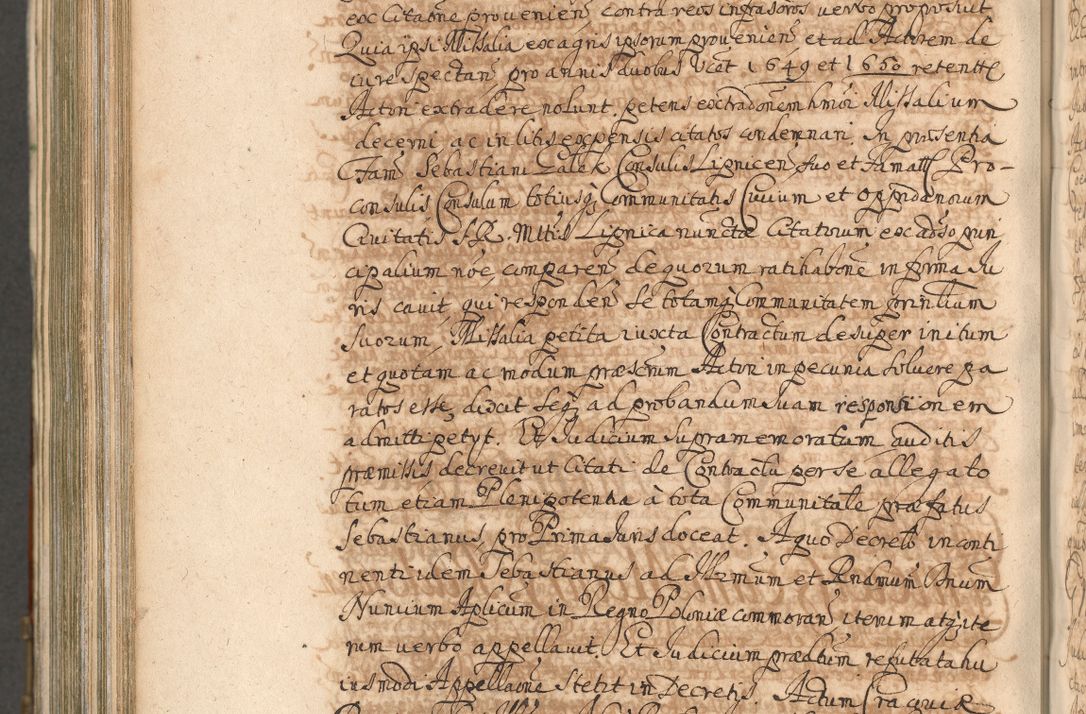 ex Cita͠one provenien̄ contra reos infrascros verbo proposuit
Quia ipsi Missalia ex agris ipsorum provenien̄ et ad Actorem de
iure spectan̄ pro annis duobus Vcet 1649 et 1650 retentt
Actori extradere nolunt, petens extradonem hmoi Missalium
decerni, ac in litis expensis citatos condemnari. In præsentia
Fam̄ Sebastiani Zatek Consulis Lignicen̄ suo et Famatt Pro-
consulis Consulum totiusq; Communitatis Civium et Oppidanorum
Civitatis S. R. Mttis Lignica nuncta Citatorum ex adverso prin
cipalium noẽ, comparen̄ de quorum ratihabõne in forma Iu
ris cavit, qui responden̄ se totamq; Communitatem prinlium
suorum, Missalia petita iuxta Contractum desuper initum
et quotam ac modum præscrum Actori in pecunia solvere pa
ratos esse, dixit seq; ad probandum suam responsionem
admitti petyt. Et Iudicium supramemoratum auditis
præmissis decrevit ut Citati de Contractu per se allegato
tum etiam Plenipotentia à tota Communitate præfatus
Sebastianus, pro Prima Iuris doceat. A quo Decreto in conti
nenti idem Sebastianus ad Illrmum et Rndmum Dnum
Nuncium Aplicum in Regno Poloniæ commoran̄ iterum atq; ite
rum verbo appellavit. Et Iudicium prædtum refutata hu
iusmodi Appellaone stetit in Decretis. Actum Cracoviæ